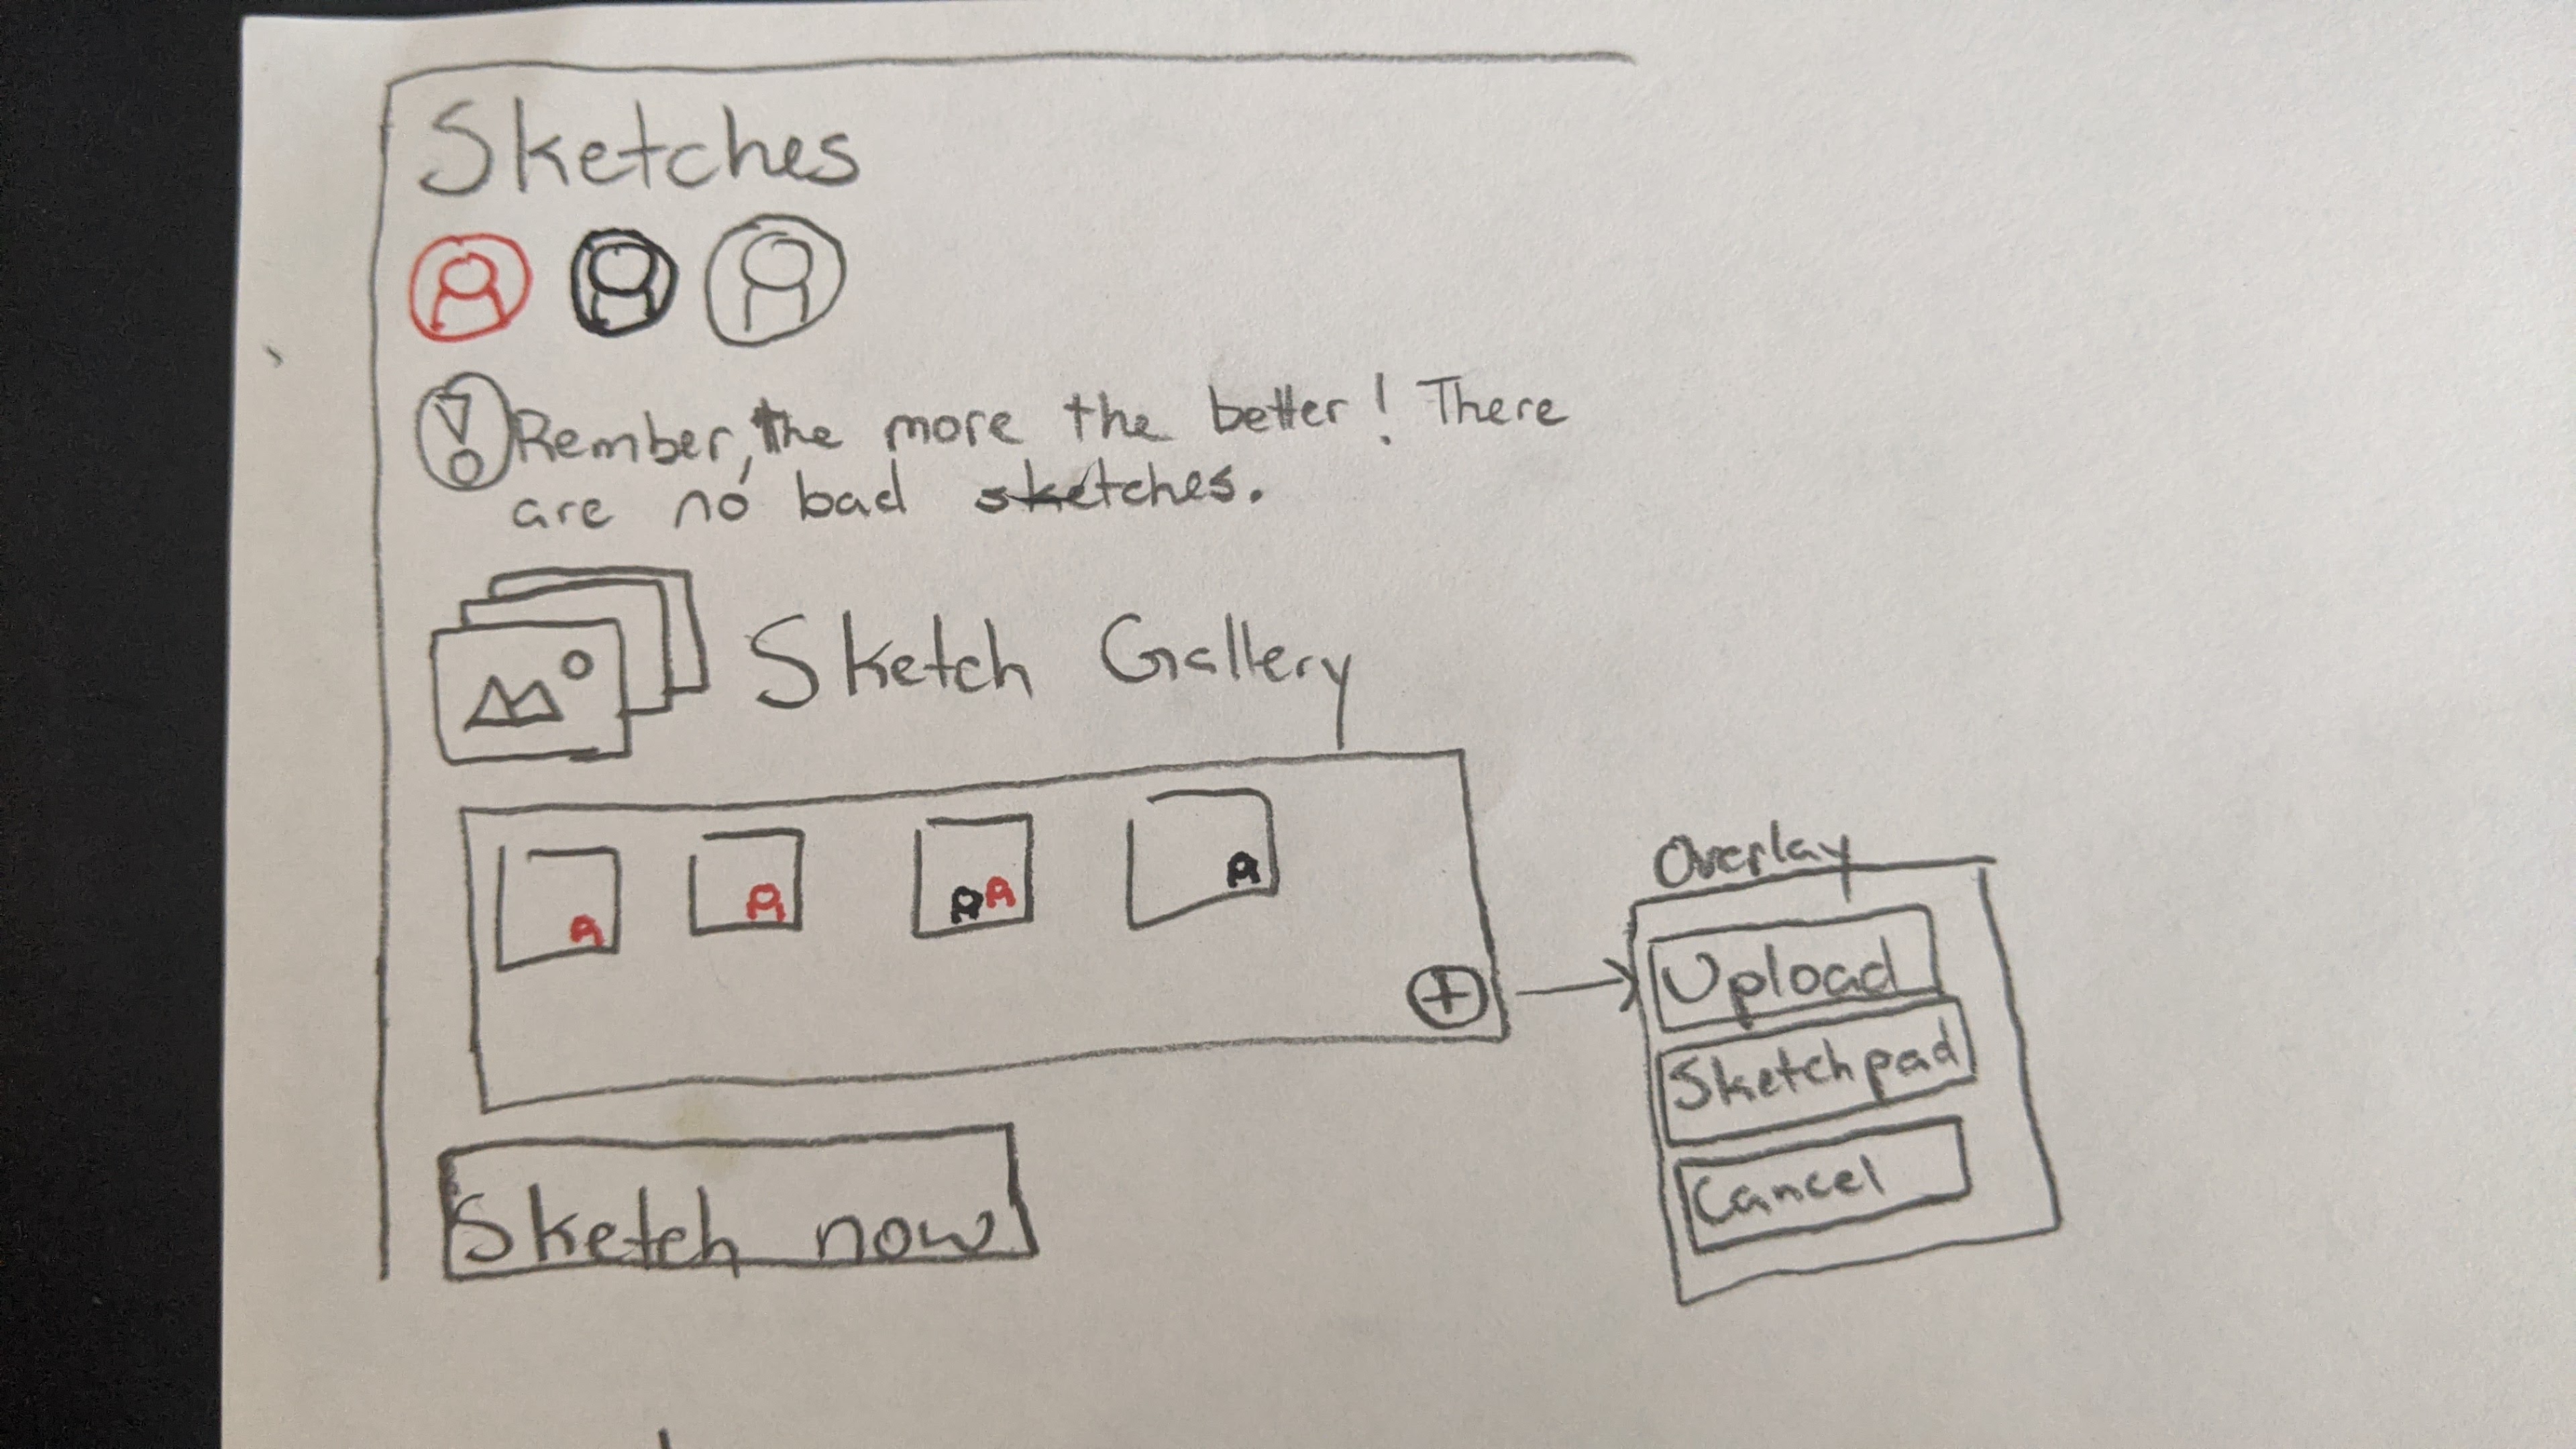 Sketches
Rember, the more the better! There
are no bad sketches.
Sketch Gallery
Overlay
Upload
Sketchpad
Cancel
Sketch now